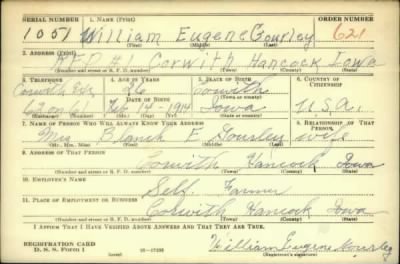 SERIAL NUMBER 1. NAME (Print) ORDER NUMBER
1051 William Eugene Gourley 621
(First) (Middle) (Last)
2. ADDRESS (Print)
R.F.D. #1 Corwith Hancock Iowa
(Number and street or R. F. D. number) (Town) (County) (State)
3. TELEPHONE 4. AGE IN YEARS 5. PLACE OF BIRTH 6. COUNTRY OF CITIZENSHIP
Corwith 26 Corwith
DATE OF BIRTH (Town or county)
62 on 61 Feb 14-1914 Iowa U.S.A.
(Exchange) (Number) (Mo.) (Day) (Yr.) (State or country)
7. NAME OF PERSON WHO WILL ALWAYS KNOW YOUR ADDRESS 8. RELATIONSHIP OF THAT PERSON
Mrs Blanch E Gourley wife
(Mr., Mrs., Miss) (First) (Middle) (Last)
9. ADDRESS OF THAT PERSON
Corwith Hancock Iowa
(Number and street or R. F. D. number) (Town) (County) (State)
10. EMPLOYER'S NAME
Self Farmer
11. PLACE OF EMPLOYMENT OR BUSINESS
Corwith Hancock Iowa
(Number and street or R. F. D. number) (Town) (County) (State)
I AFFIRM THAT I HAVE VERIFIED ABOVE ANSWERS AND THAT THEY ARE TRUE.
REGISTRATION CARD
D. S. S. Form 1 (over) William Eugene Gourley
(Registrant's signature)